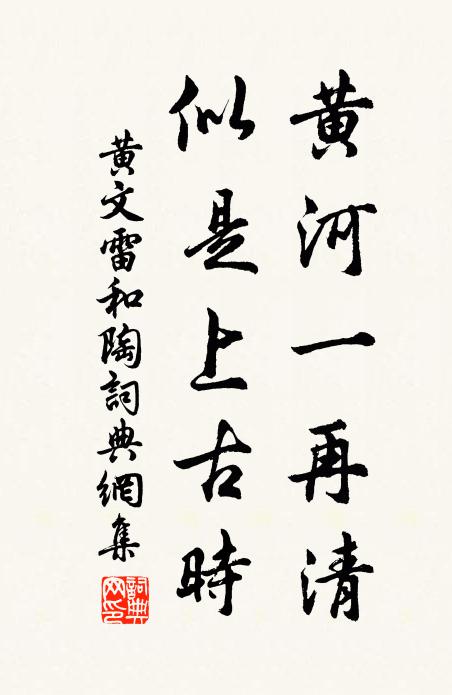 黄河一再清
似是上古時
黄文雷和陶詞典網集
詞典網印